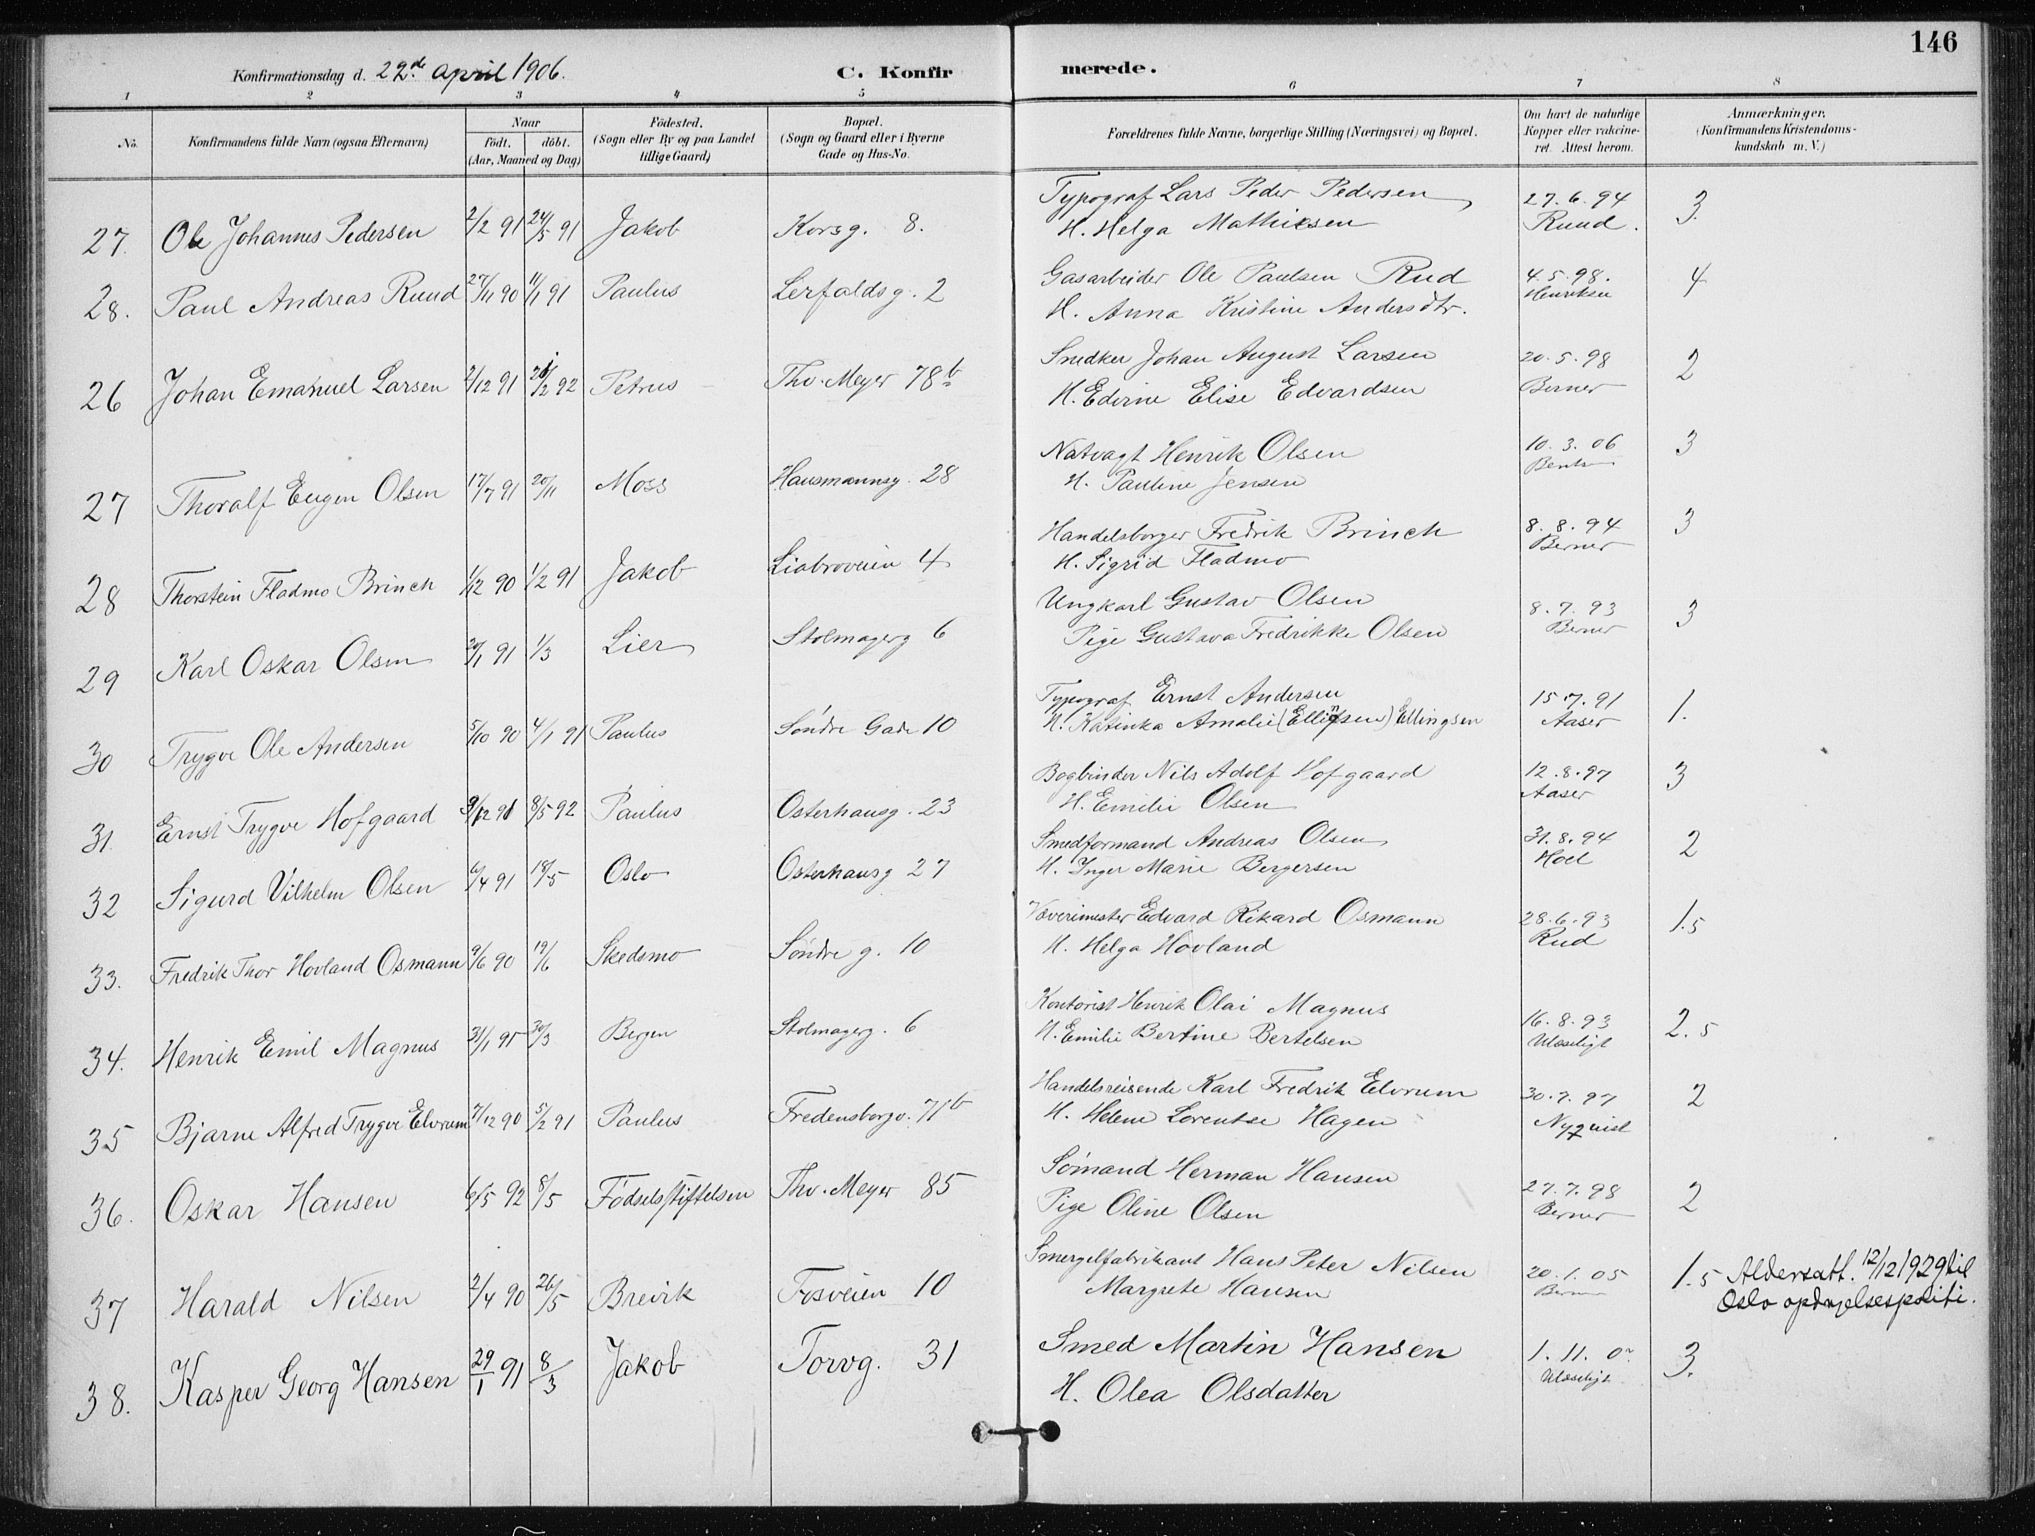 146
Konfirmationsdag d. 22de April 1906.
C. Konfirmerede.
1 2 3 4 5 6 7 8
No. Konfirmandens fulde Navn (ogsaa Efternavn) Naar født. døbt. (Aar, Maaned og Dag) Fødested. (Sogn eller By og paa Landet tillige Gaard) Bopæl. (Sogn og Gaard eller i Byerne Gade og Hus-No. Forældrenes fulde Navne, borgerlige Stilling (Næringsvei) og Bopæl. Om havt de naturlige Kopper eller vakcineret. Attest herom. Anmærkninger. (Konfirmandens Kristendomskundskab m. V.)
27. Ole Johannes Pedersen 2/2 91 24/5 91 Jakob Korsg. 8. Typograf Lars Peder Pedersen 27.6.94 3.
H. Helga Mathiesen Ruud.
28. Paul Andreas Ruud 27/11 90 11/1 91 Paulus Lerfaldsg. 2 Gasarbeider Ole Paulsen Rud 4.5.98. 4
H. Anna Kristine Andersdtr. Henriksen
26 Johan Emanuel Larsen 2/12 91 2 92 Petrus Thv. Meyer 78b Snedker Johan August Larsen 20.5.98 2
H. Edvine Elise Edvardsen Berner
27 Thoralf Eugen Olsen 17/7 91 20/11 Moss Hausmannsg. 28 Natvagt Henrik Olsen 10.3.06 3
H. Pauline Jensen
28 Thorstein Fladmo Brinch 1/12 90 1/2 91 Jakob Liabroveien 4 Handelsborger Fredrik Brinch 8.8.94 3
H. Sigrid Fladmo Berner
29 Karl Oskar Olsen 20/1 91 1/3 Lier Stolmagerg 6 Ungkarl Gustav Olsen 8.7.93 3
Pige Gustava Fredrikke Olsen Berner
30 Trygve Ole Andersen 5/10 90 4/1 91 Paulus Søndre Gade 10 Typograf Ernst Andersen 15.7.91 1.
H. Katinka Amalie (Ellifsen) Ellingsen Aaser
31 Ernst Trygve Hofgaard 9/12 91 8/5 92 Paulus Osterhausg. 23 Bogbinder Nils Adolf Hofgaard 12.8.97 3
H. Emilie Olsen Aaser
32 Sigurd Vilhelm Olsen 6/4 91 18/5 Oslo Osterhausg 27 Smedformand Andreas Olsen 31.8.94 2
H. Inger Marie Bergersen Hoel
33. Fredrik Thor Hovland Osmann 9/6 90 19/6 Skedsmo Søndre g. 10 Væverimester Edvard Rikard Osmann 28.6.93 1.5
H. Helga Hovland Rud
34. Henrik Emil Magnus 31/1 91 30/3 Bergen Stolmagerg. 6 Kontorist Henrik Olai Magnus 16.8.93 2.5
H. Emilie Bertine Bertelsen Ulæseligt
35 Bjarne Alfred Trygve Elvrum 7/12 90 5/2 91 Paulus Fredensborgv. 71b Handelsreisende Karl Fredrik Elvrum 30.7.97 2
H. Helene Lorentse Hagen Nyqvist
36. Oskar Hansen 6/5 92 8/5 Fødselsstiftelsen Thv. Meyer 85 Sømand Herman Hansen 27.7.98 2
Pige Oline Olsen Berner
37 Harald Nilsen 2/4 90 26/5 Brevik Fosveien 10 Smergelfabrikant Hans Peter Nilsen 20.1.05 1.5 Aldersatt. 12/12 1929 til
Margrete Hansen Oslo opdagelsespoliti.
38. Kasper Georg Hansen 29/1 91 8/3 Jakob Torvg. 31 Smed Martin Hansen 1.11. 3.
H. Olea Olsdatter Ulæseligt